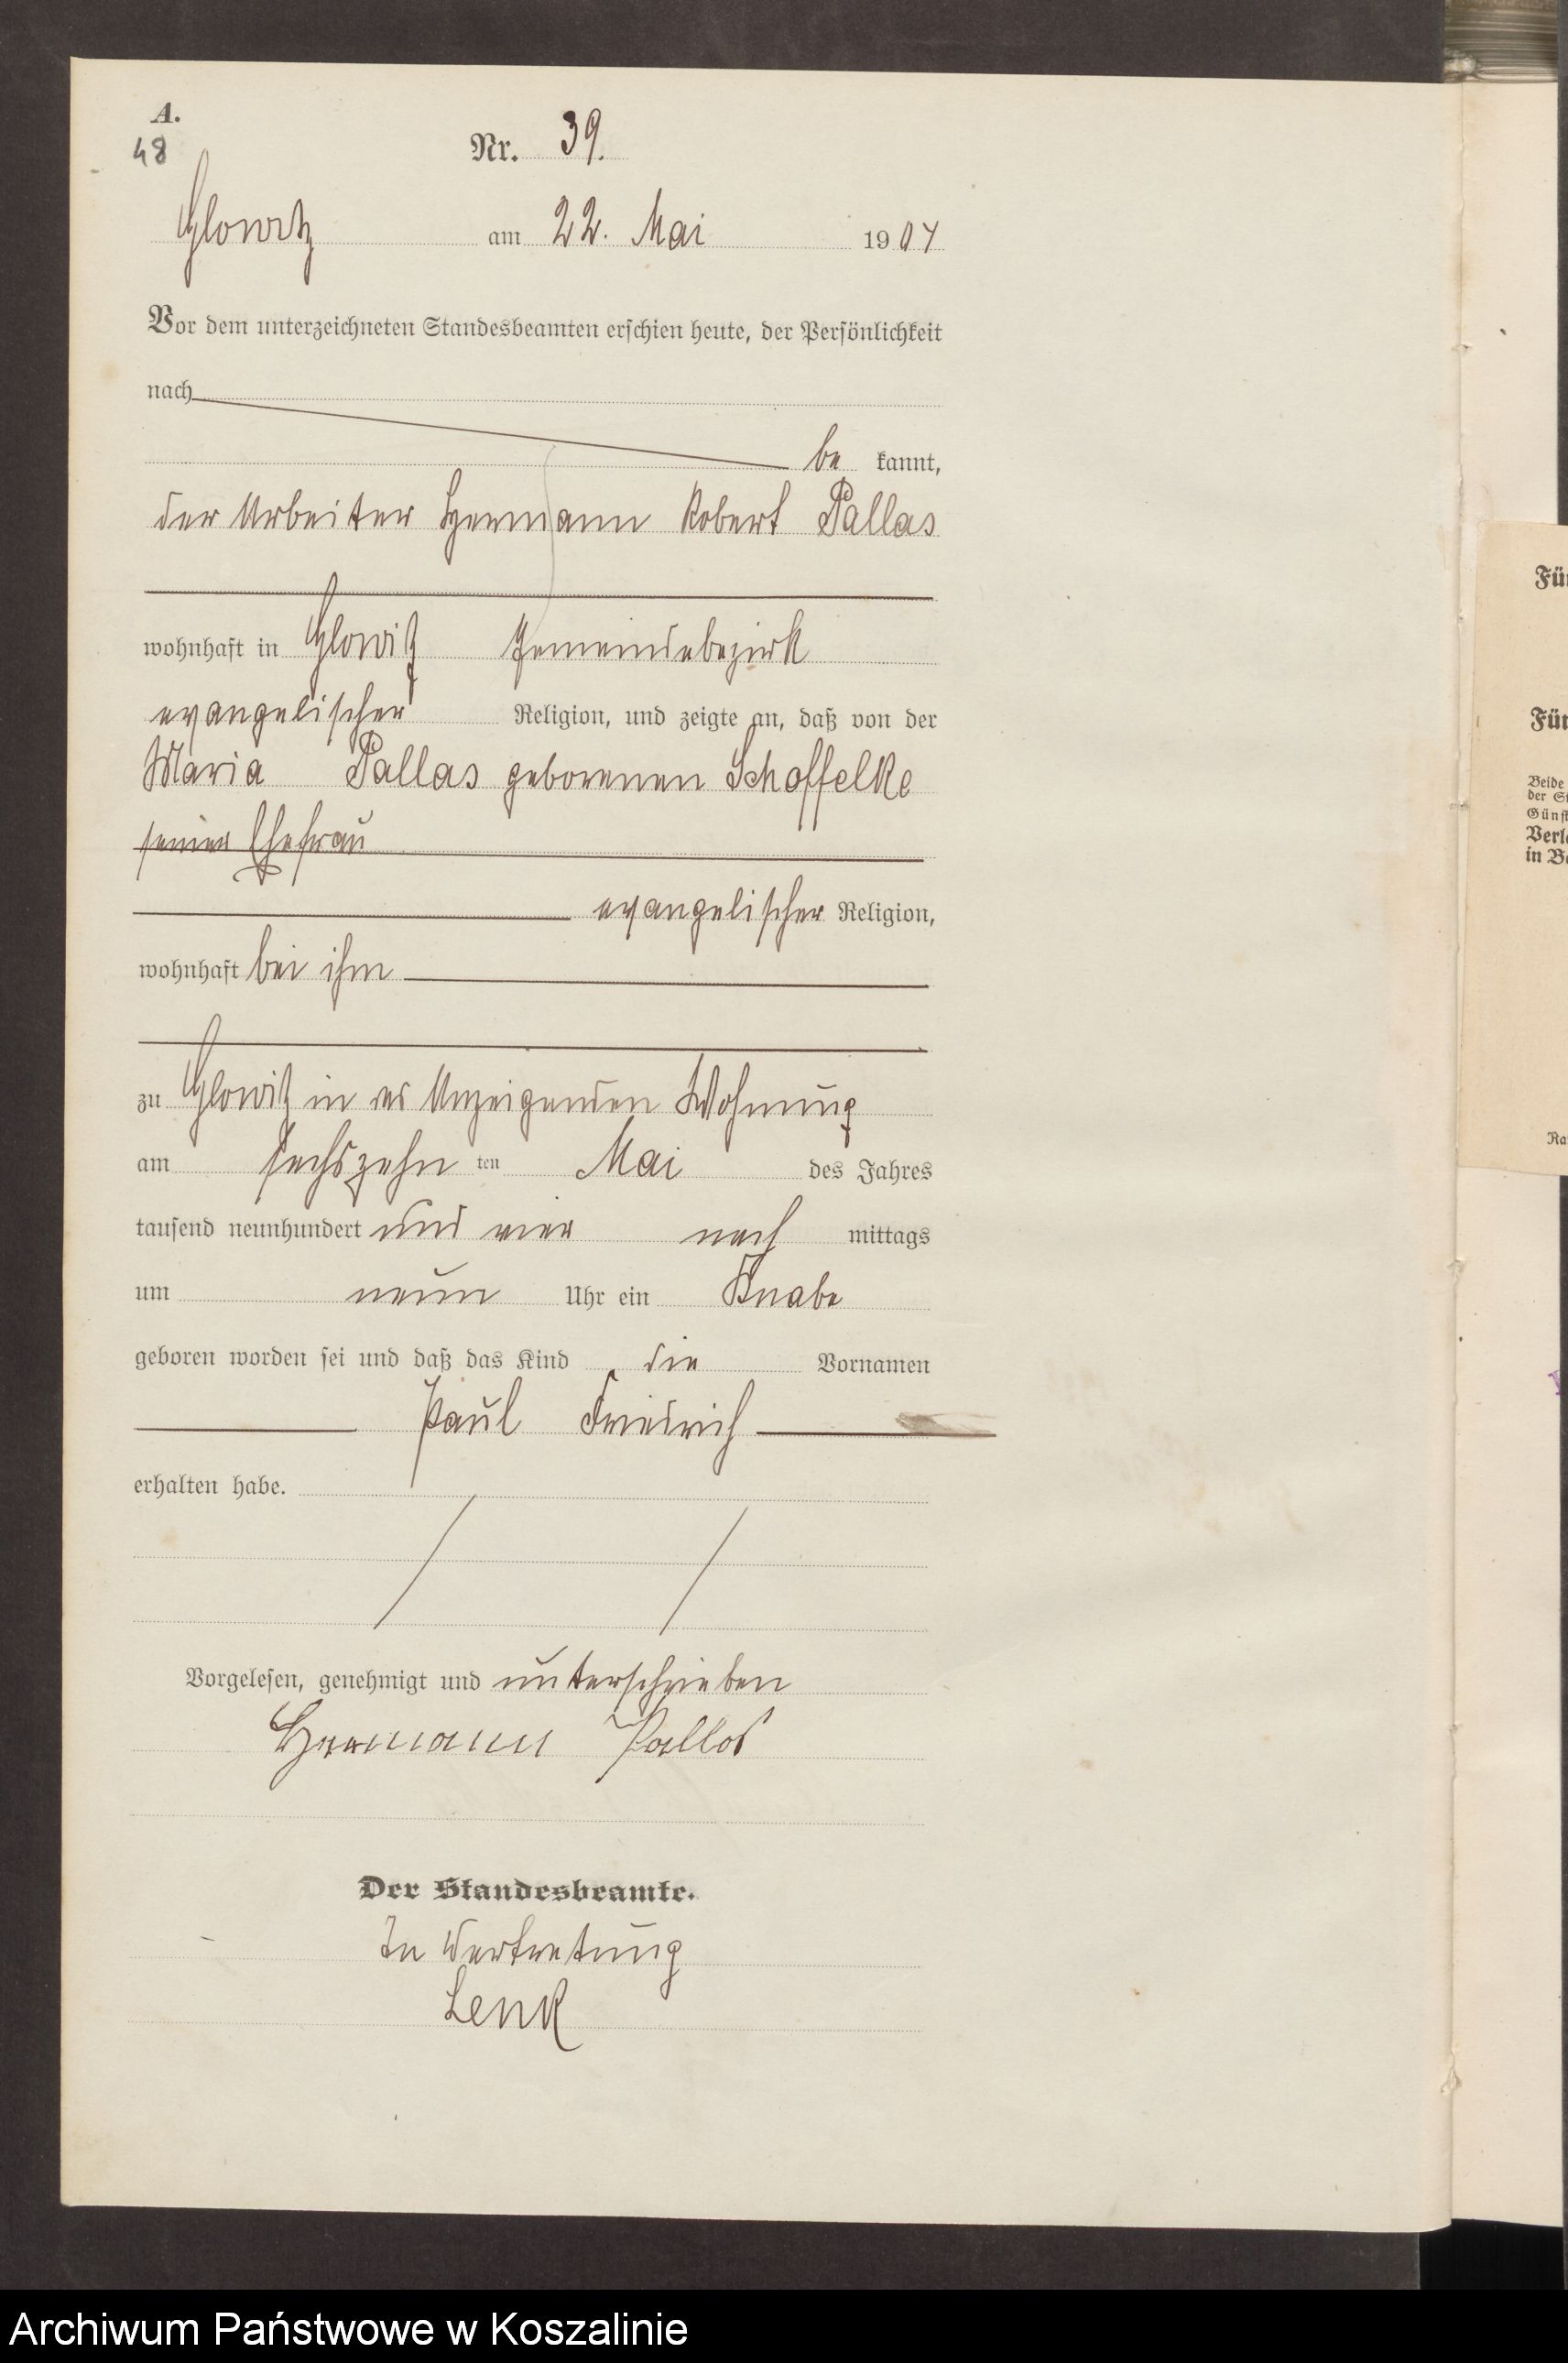 A.
48
Nr. 39.
Glowitz am 22. Mai 1904
Vor dem unterzeichneten Standesbeamten erschien heute, der Persönlichkeit
nach
be kannt,
der Arbeiter Hermann Robert Pallas
wohnhaft in Glowitz Gemeindebezirk
evangelischer Religion, und zeigte an, daß von der
Maria Pallas geborenen Schoffelke
seiner Ehefrau
evangelischer Religion,
wohnhaft bei ihm
zu Glowitz in des Anzeigenden Wohnung
am sechszehn ten Mai des Jahres
tausend neunhundert und vier nach mittags
um neun Uhr ein Knabe
geboren worden sei und daß das Kind die Vornamen
Paul Friedrich
erhalten habe.
Vorgelesen, genehmigt und unterschrieben
Hermann Pallas
Der Standesbeamte.
In Vertretung
Lenk
Für
Beide
der
Verl
in
Ra
Archiwum Państwowe w Koszalinie